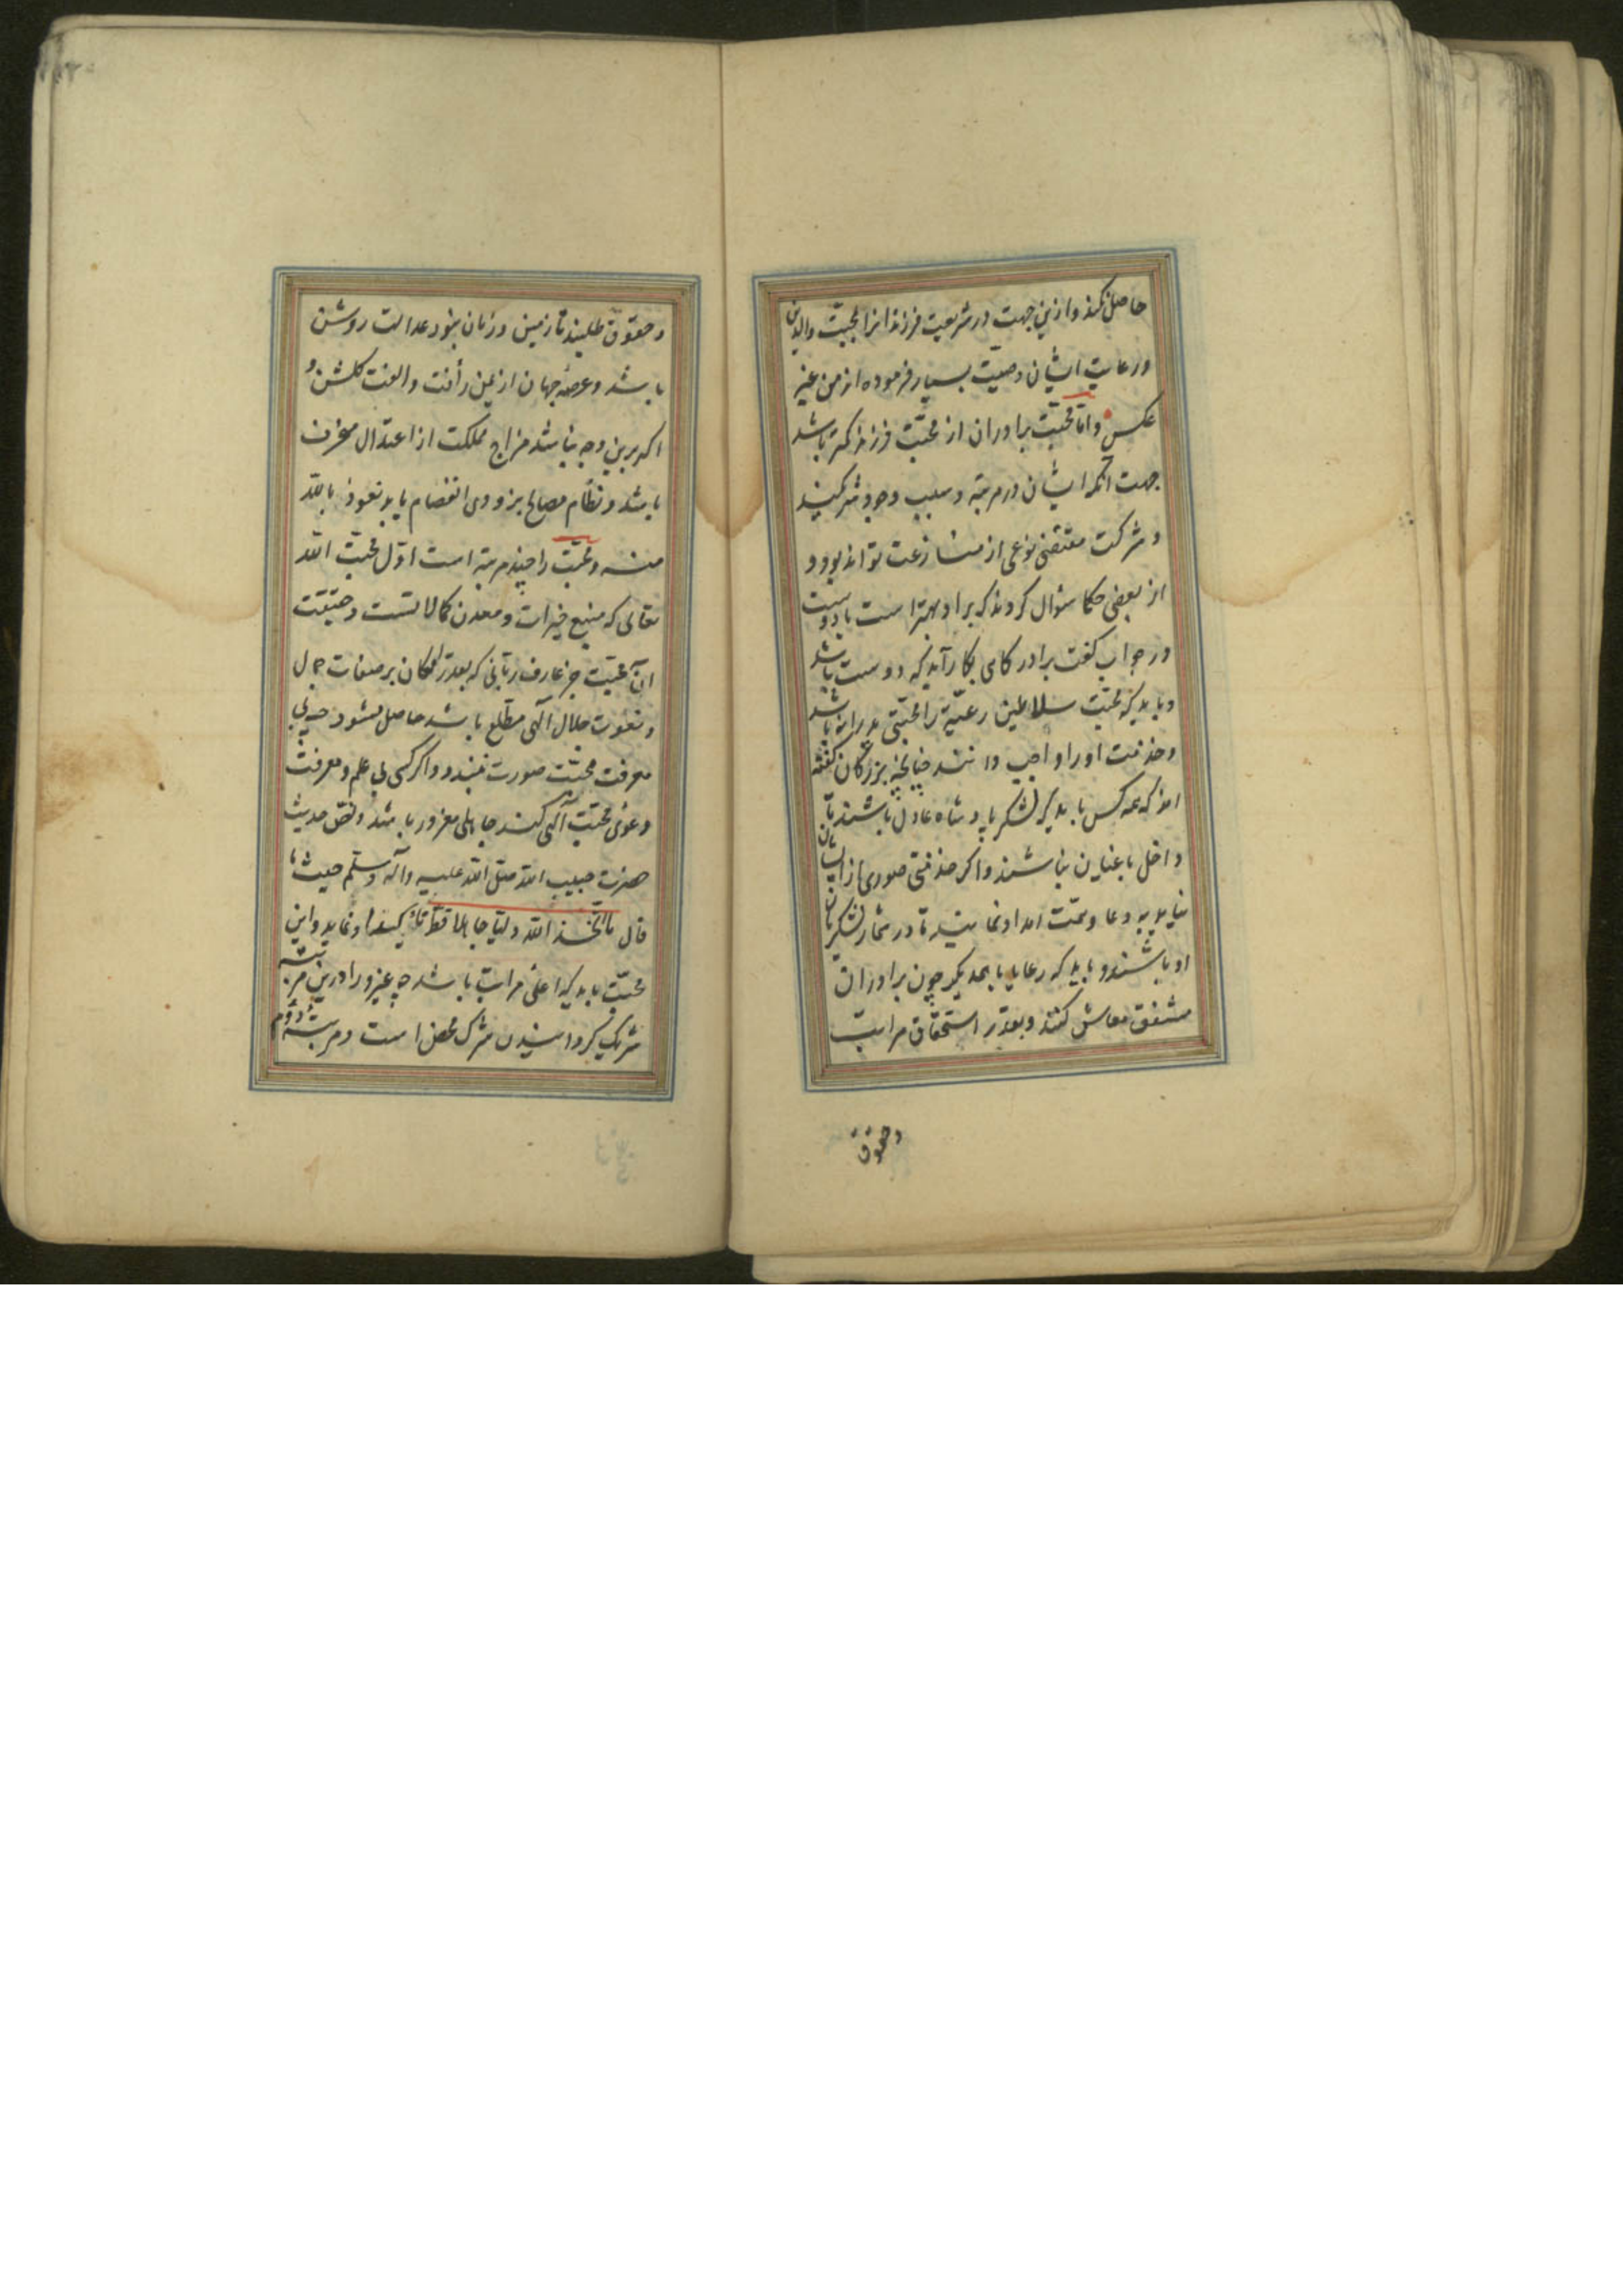 حاصل نکند و ازین جهت در شریعت فرزندانرا بمحبت والدین
و رعایت ایشان وصیت بسیار فرموده اند من غیر
عکس و اما محبت برادران از محبت فرزند کمتر باشد
جهت آنکه ایشان در مرتبه و سبب وجود شریکند
و شرکت مقتضی نوعی از منازعت تواند بود و
از بعضی حکما سؤال کردند که برادر بهتر است یا دوست
در جواب گفت برادر کاهی بکار آید که دوست باشد
و باید که محبت سلاطین رعیة را محبتی پدرانه باشد
و خدمت او را واجب دانند چنانچه بزرگان گفته
اند که همه کس باید که لشکر پادشاه عادل باشند تا
داخل باغیان نباشند و اگر خدمتی صوری از ایشان
نیاید به دعا و همت امداد نمایند تا در شمار لشکریان
او باشند و باید که رعایا با همدیگر چون برادران
مشفق معاش کنند و بقدر استحقاق مراتب
و حقوق
و حقوق طلبند تا زمین و زمان بنور عدالت روشن
باشد و عرصهٔ جهان از یمن رأفت و الفت گلشن و
اگر برین وجه نباشد مزاج مملکت از اعتدال منحرف
باشد و نظام مصالح بزودی انفصام یابد نعوذ بالله
منه و محبت را چند مرتبه است اول محبت الله
تعالی که منبع خیرات و معدن کمالاتست و حقیقت
آن محبت جز عارف ربانی که بقدر امکان بر صفات جمال
و نعوت جلال آلهی مطلع باشد حاصل نشود چه بی
معرفت محبت صورت نبندد و اگر کسی بی علم و معرفت
دعوی محبت آلهی کند جاهلی مغرور باشد و نص حدیث
حضرت حبیب الله صلی الله علیه و آله و سلم حیث
قال ما اتخذ الله ولیا جاهلا قط و این
محبت باید که اعلی مراتب باشد چه غیر او را درین مرتبه
شریک گردانیدن شرک محض است و مرتبهٔ دوم